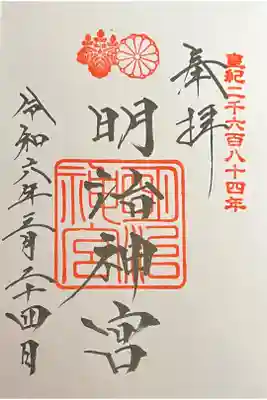 皇紀二千六百八十四年
奉拝
明治神宮
明治
神宮
令和六年三月二十四日